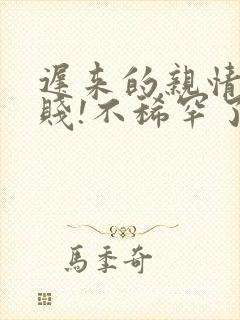 遲來的親情
賤!不稀罕了
馬季奇